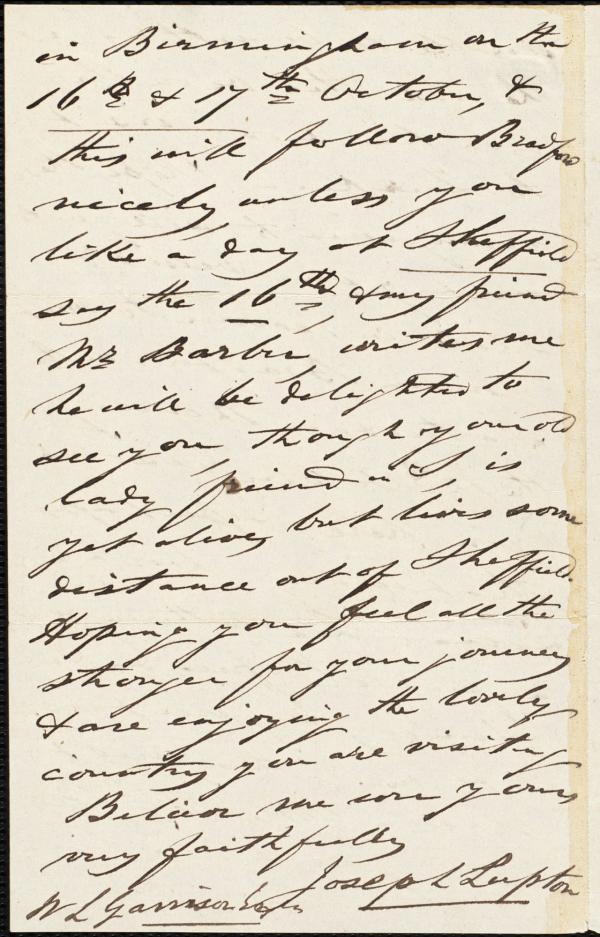 in Birmingham on the
16th & 17th October, &
this will follow Bradford
nicely unless you
like a day at Sheffield
say the 16th, & my friend
Mr Barber, writes me
he will be delighted to
see you, though your old
lady friend in S, is
yet alive, but lives some
distance out of Sheffield.
Hoping you feel all the
stronger for your journey
& are enjoying the lovely
country you are visiting
Believe me son yours
very faithfully
Joseph Lupton
W L Garrison Esq